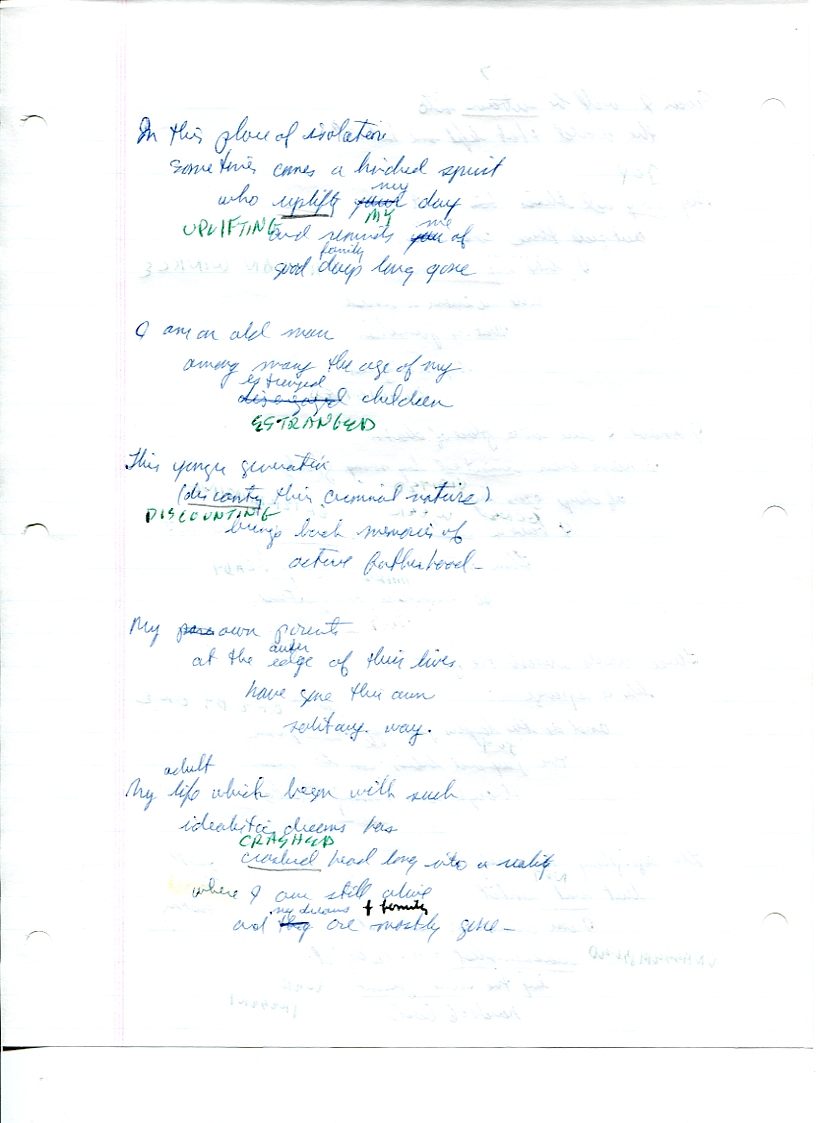 In this place of isolation
sometimes comes a kindred spirit
my
who uplifts your day
UPLIFTING MY me
and reminds you of
family
good days long gone
I am an old man
among many the age of my
estranged
disengaged children
ESTRANGED
This yonger generation
(discounting their criminal nature)
DISCOUNTING
brings back memories of
active fatherhood -
My own parents
outer
at the edge of their lives
have gone their own
solitary way.
adult
My life which began with such
idealistic dreams has
CRASHED
crashed head long into a reality
where I am still alive
my dreams + family
and they are mostly gone -